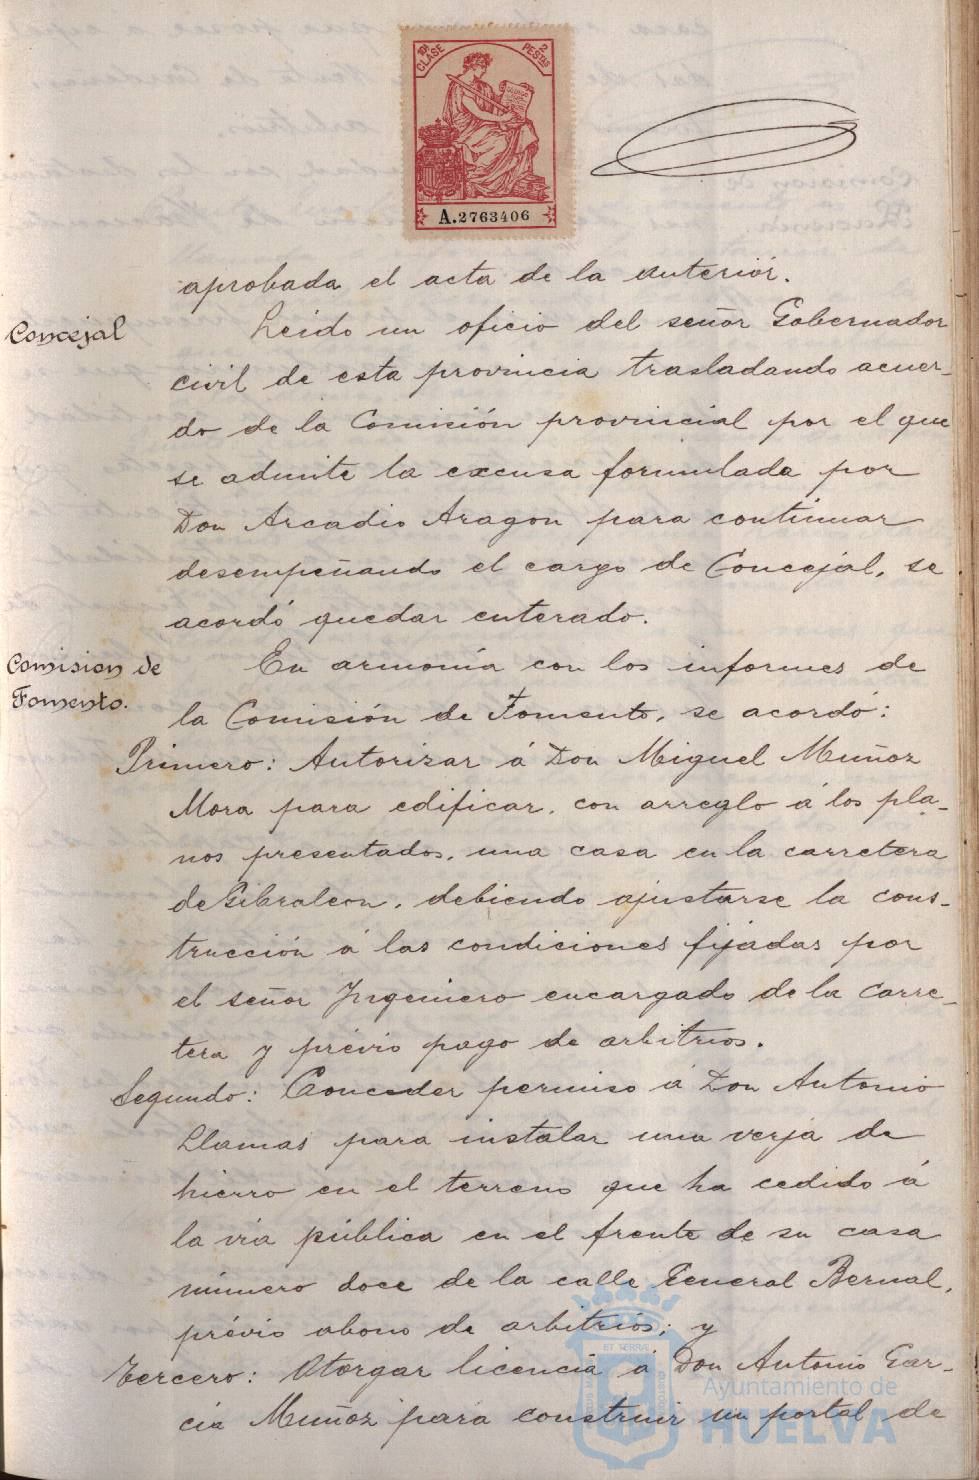 10ª CLASE
2 PESTAS
A.2763406
aprobada el acta de la anterior.
Concejal
Leido un oficio del señor Gobernador
civil de esta provincia trasladando acuer-
do de la Comisión provincial por el que
se admite la excusa formulada por
Don Arcadio Aragon para continuar
desempeñando el cargo de Concejal, se
acordó quedar enterado.
Comision de
Fomento.
En armonía con los informes de
la Comisión de Fomento, se acordó:
Primero: Autorizar á Don Miguel Muñoz
Mora para edificar, con arreglo á los pla-
nos presentados, una casa en la carretera
de Gibraleon, debiendo ajustarse la cons-
trucción á las condiciones fijadas por
el señor Ingeniero encargado de la carre-
tera y prévio pago de arbitrios.
Segundo: Conceder permiso á Don Antonio
Llamas para instalar una verja de
hierro en el terreno que ha cedido á
la via pública en el frente de su casa
número doce de la calle General Bernal,
prévio abono de arbitrios; y
Tercero: Otorgar licencia á Don Antonio Gar-
cia Muñoz para construir un portal de
ET TERRÆ
Ayuntamiento de
HUELVA